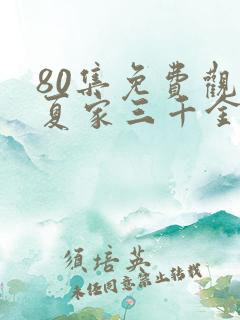 80集免費觀
夏家三十金
須培英
未任同意禁止转载